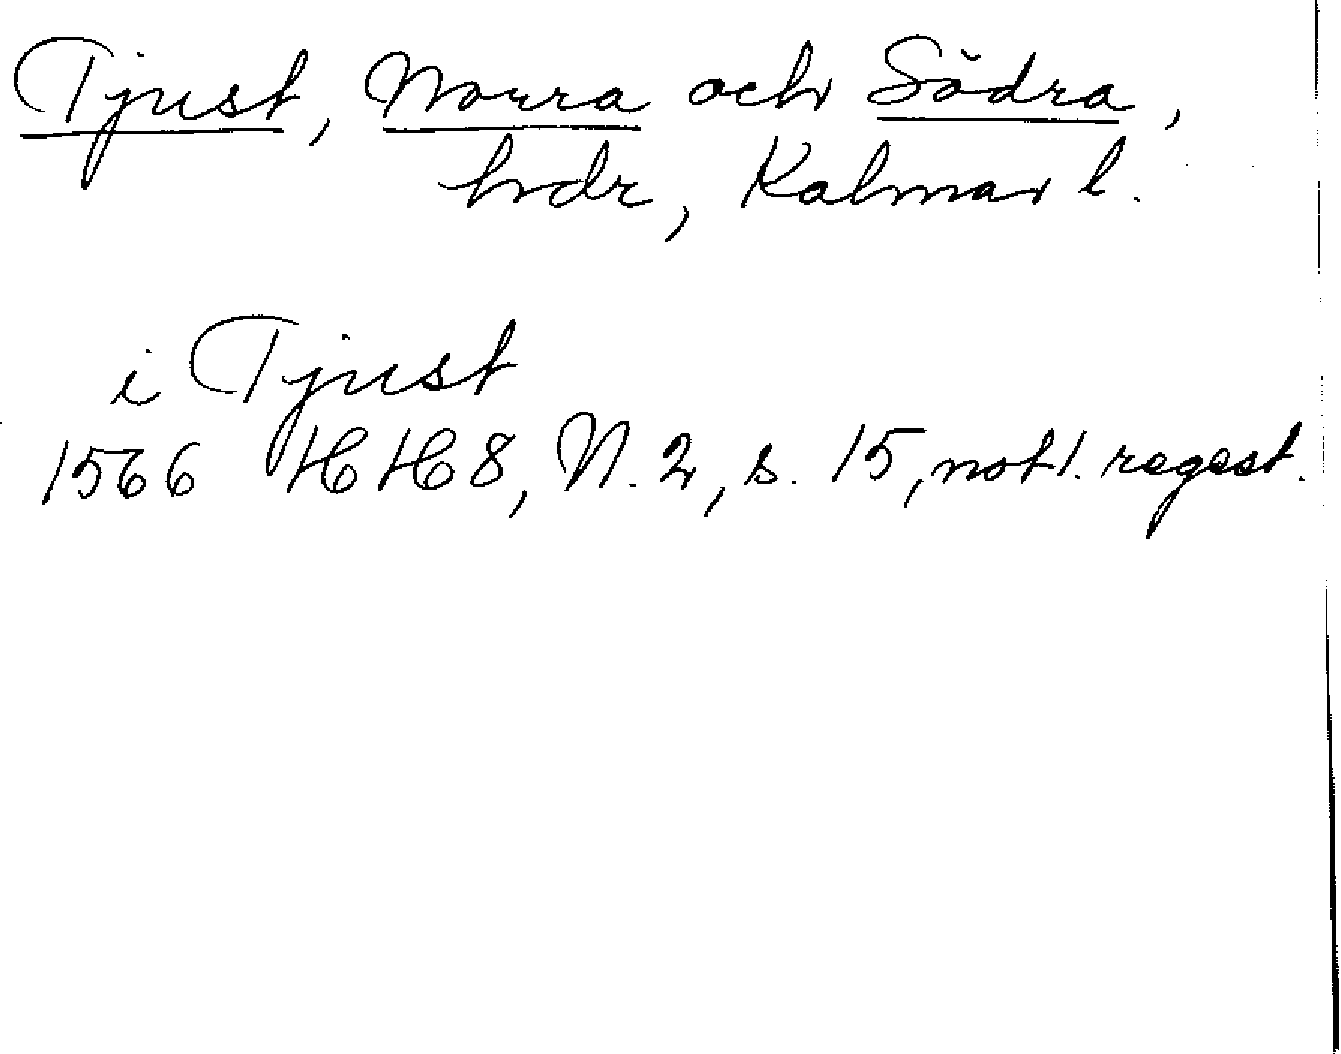 Tjust, Norra och Södra,
hrdr, Kalmar l.
i Tjust
1566 HH 8, N. 2, s. 15, not 1. regest.